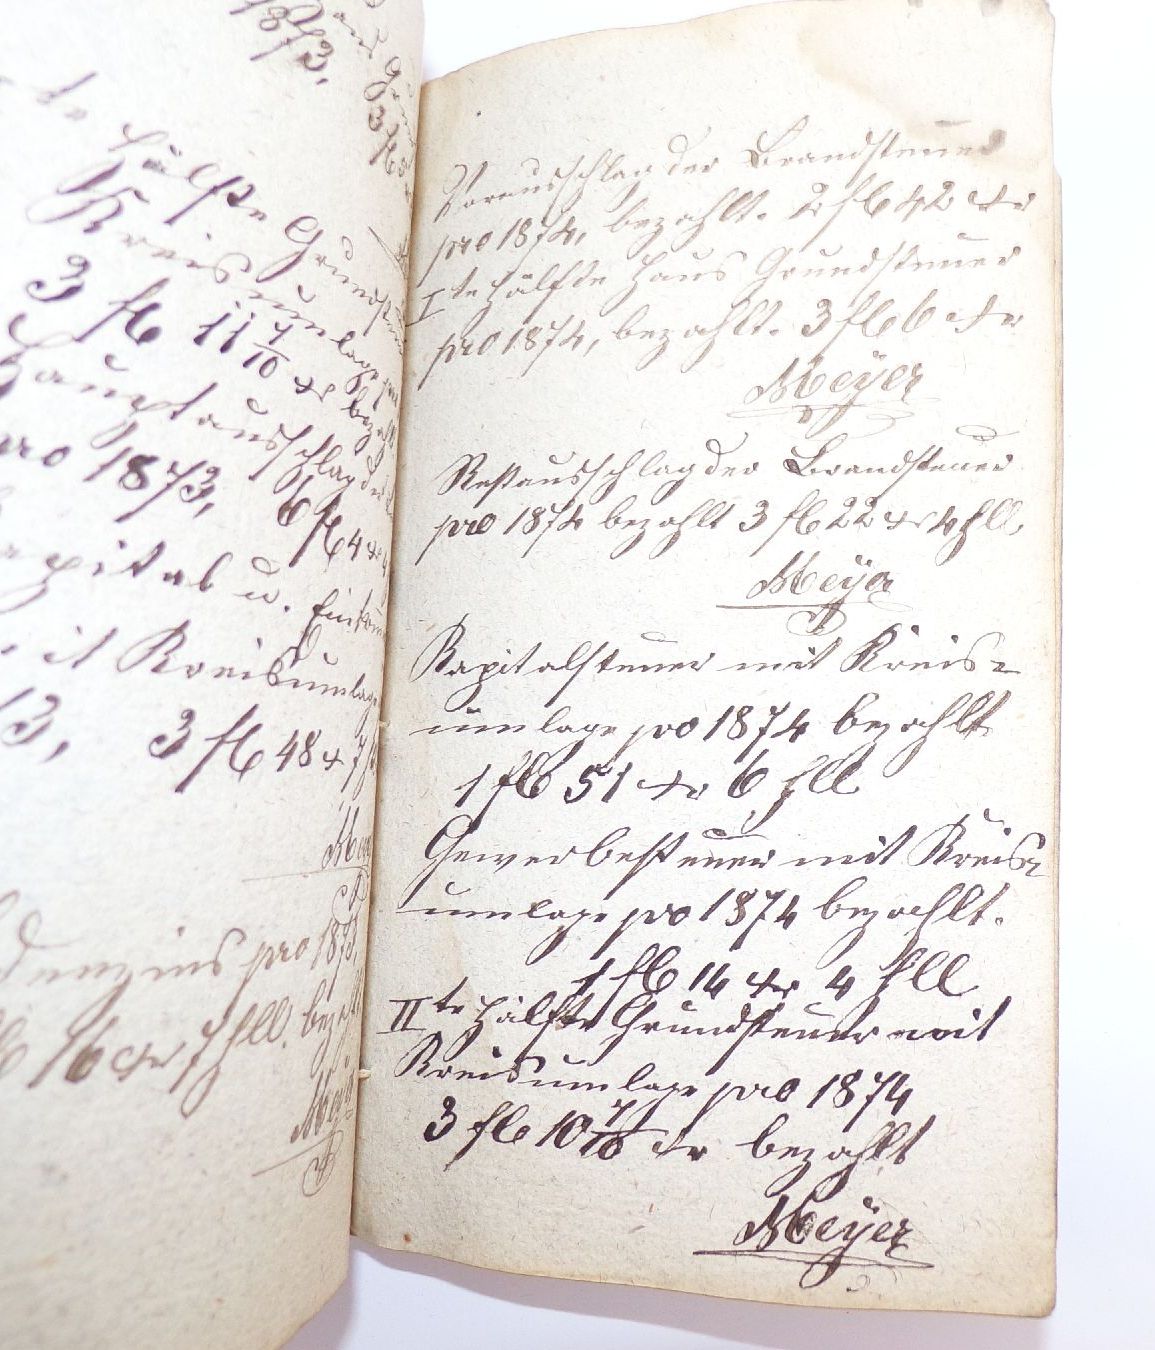 1873,
3 fl
te Hälfte Grundsteuer
Kreisumlage pro
3 fl 11 7/10 xr bezahlt
Hauptausschlag der
pro 1873, 6 fl 4 xr
Kapital u. Einkom
mit Kreisumlage
3 fl 48 x 7
Meyer
denzins pro 1873,
16 xr 7 hll. bezahlt
Meyer
Vorausschlag der Brandsteuer
pro 1874, bezahlt. 2 fl 42 xr
Ite Hälfte Haus Grundsteuer
pro 1874, bezahlt. 3 fl 6 xr
Meÿer
Restausschlag der Brandsteuer
pro 1874 bezahlt 3 fl 22 xr 4 hll.
Meÿer
Kapitalsteuer mit Kreis=
umlage pro 1874 bezahlt
1 fl 51 xr 6 hll
Gewerbesteuer mit Kreis=
umlage pro 1874 bezahlt.
1 fl 14 xr 4 hll
IIte Hälfte Grundsteuer mit
Kreisumlage pro 1874
3 fl 10 7/10 xr bezahlt
Meÿer